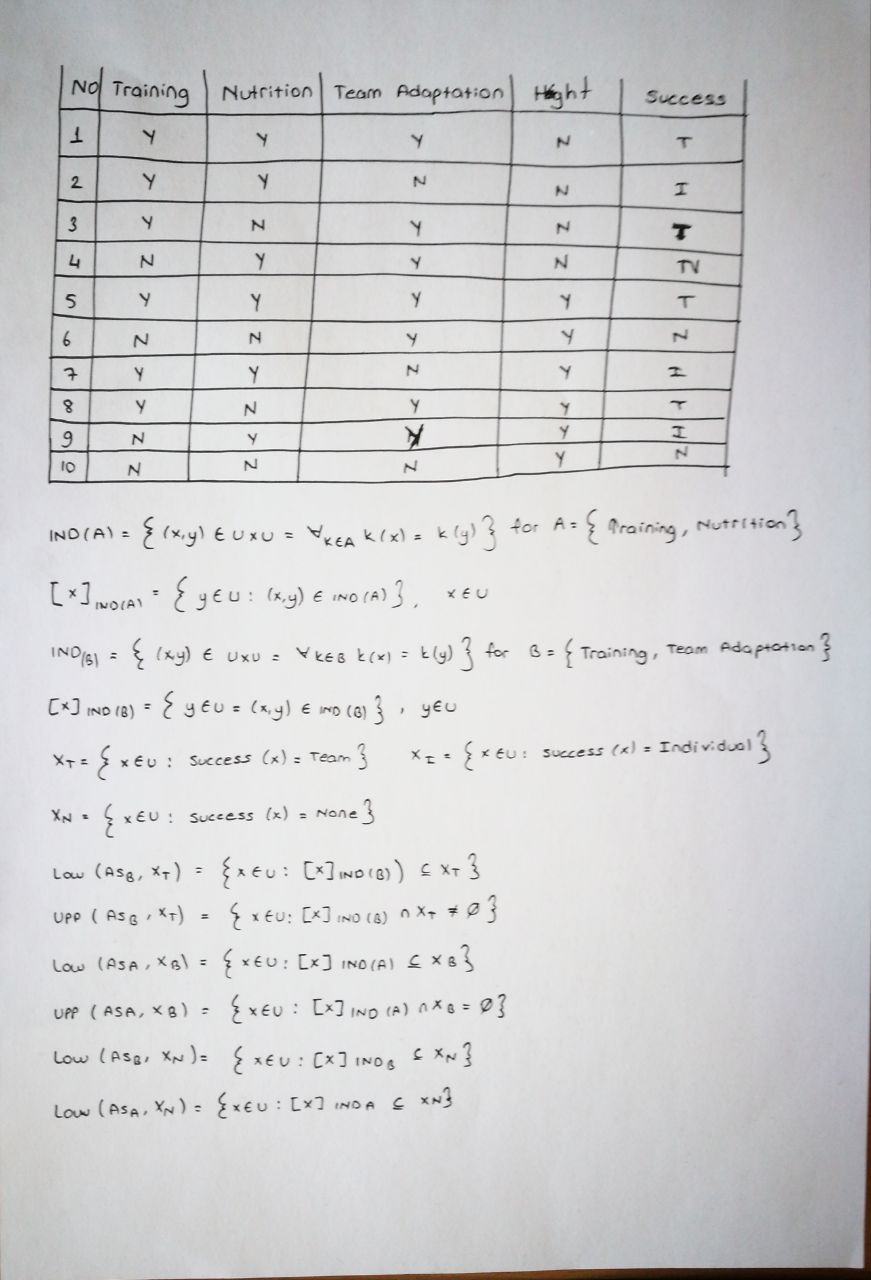 No Training Nutrition Team Adaptation Hight Success
1 Y Y Y N T
2 Y Y N N I
3 Y N Y N T
4 N Y Y N
5 Y Y Y Y T
6 N N Y Y N
7 Y Y N Y I
8 Y N Y Y T
9 N Y Y I
10 N N N Y N
IND(A) = { (x,y) ∈ U×U = ∀k∈A k(x) = k(y) } for A = { Training, Nutrition }
[x]IND(A) = { y∈U : (x,y) ∈ IND(A) }, x∈U
IND(B) = { (x,y) ∈ U×U = ∀k∈B k(x) = k(y) } for B = { Training, Team Adaptation }
[x]IND(B) = { y∈U = (x,y) ∈ IND(B) }, y∈U
XT = { x∈U : Success (x) = Team } XI = { x∈U : Success (x) = Individual }
XN = { x∈U : Success (x) = None }
Low (ASB, XT) = { x∈U : [x]IND(B)) ⊆ XT }
UPP (ASB, XT) = { x∈U : [x]IND(B) ∩ XT ≠ ∅ }
Low (ASA, XB) = { x∈U : [x]IND(A) ⊆ XB }
UPP (ASA, XB) = { x∈U : [x]IND(A) ∩ XB = ∅ }
Low (ASB, XN) = { x∈U : [x]INDB ⊆ XN }
Low (ASA, XN) = { x∈U : [x]INDA ⊆ XN }